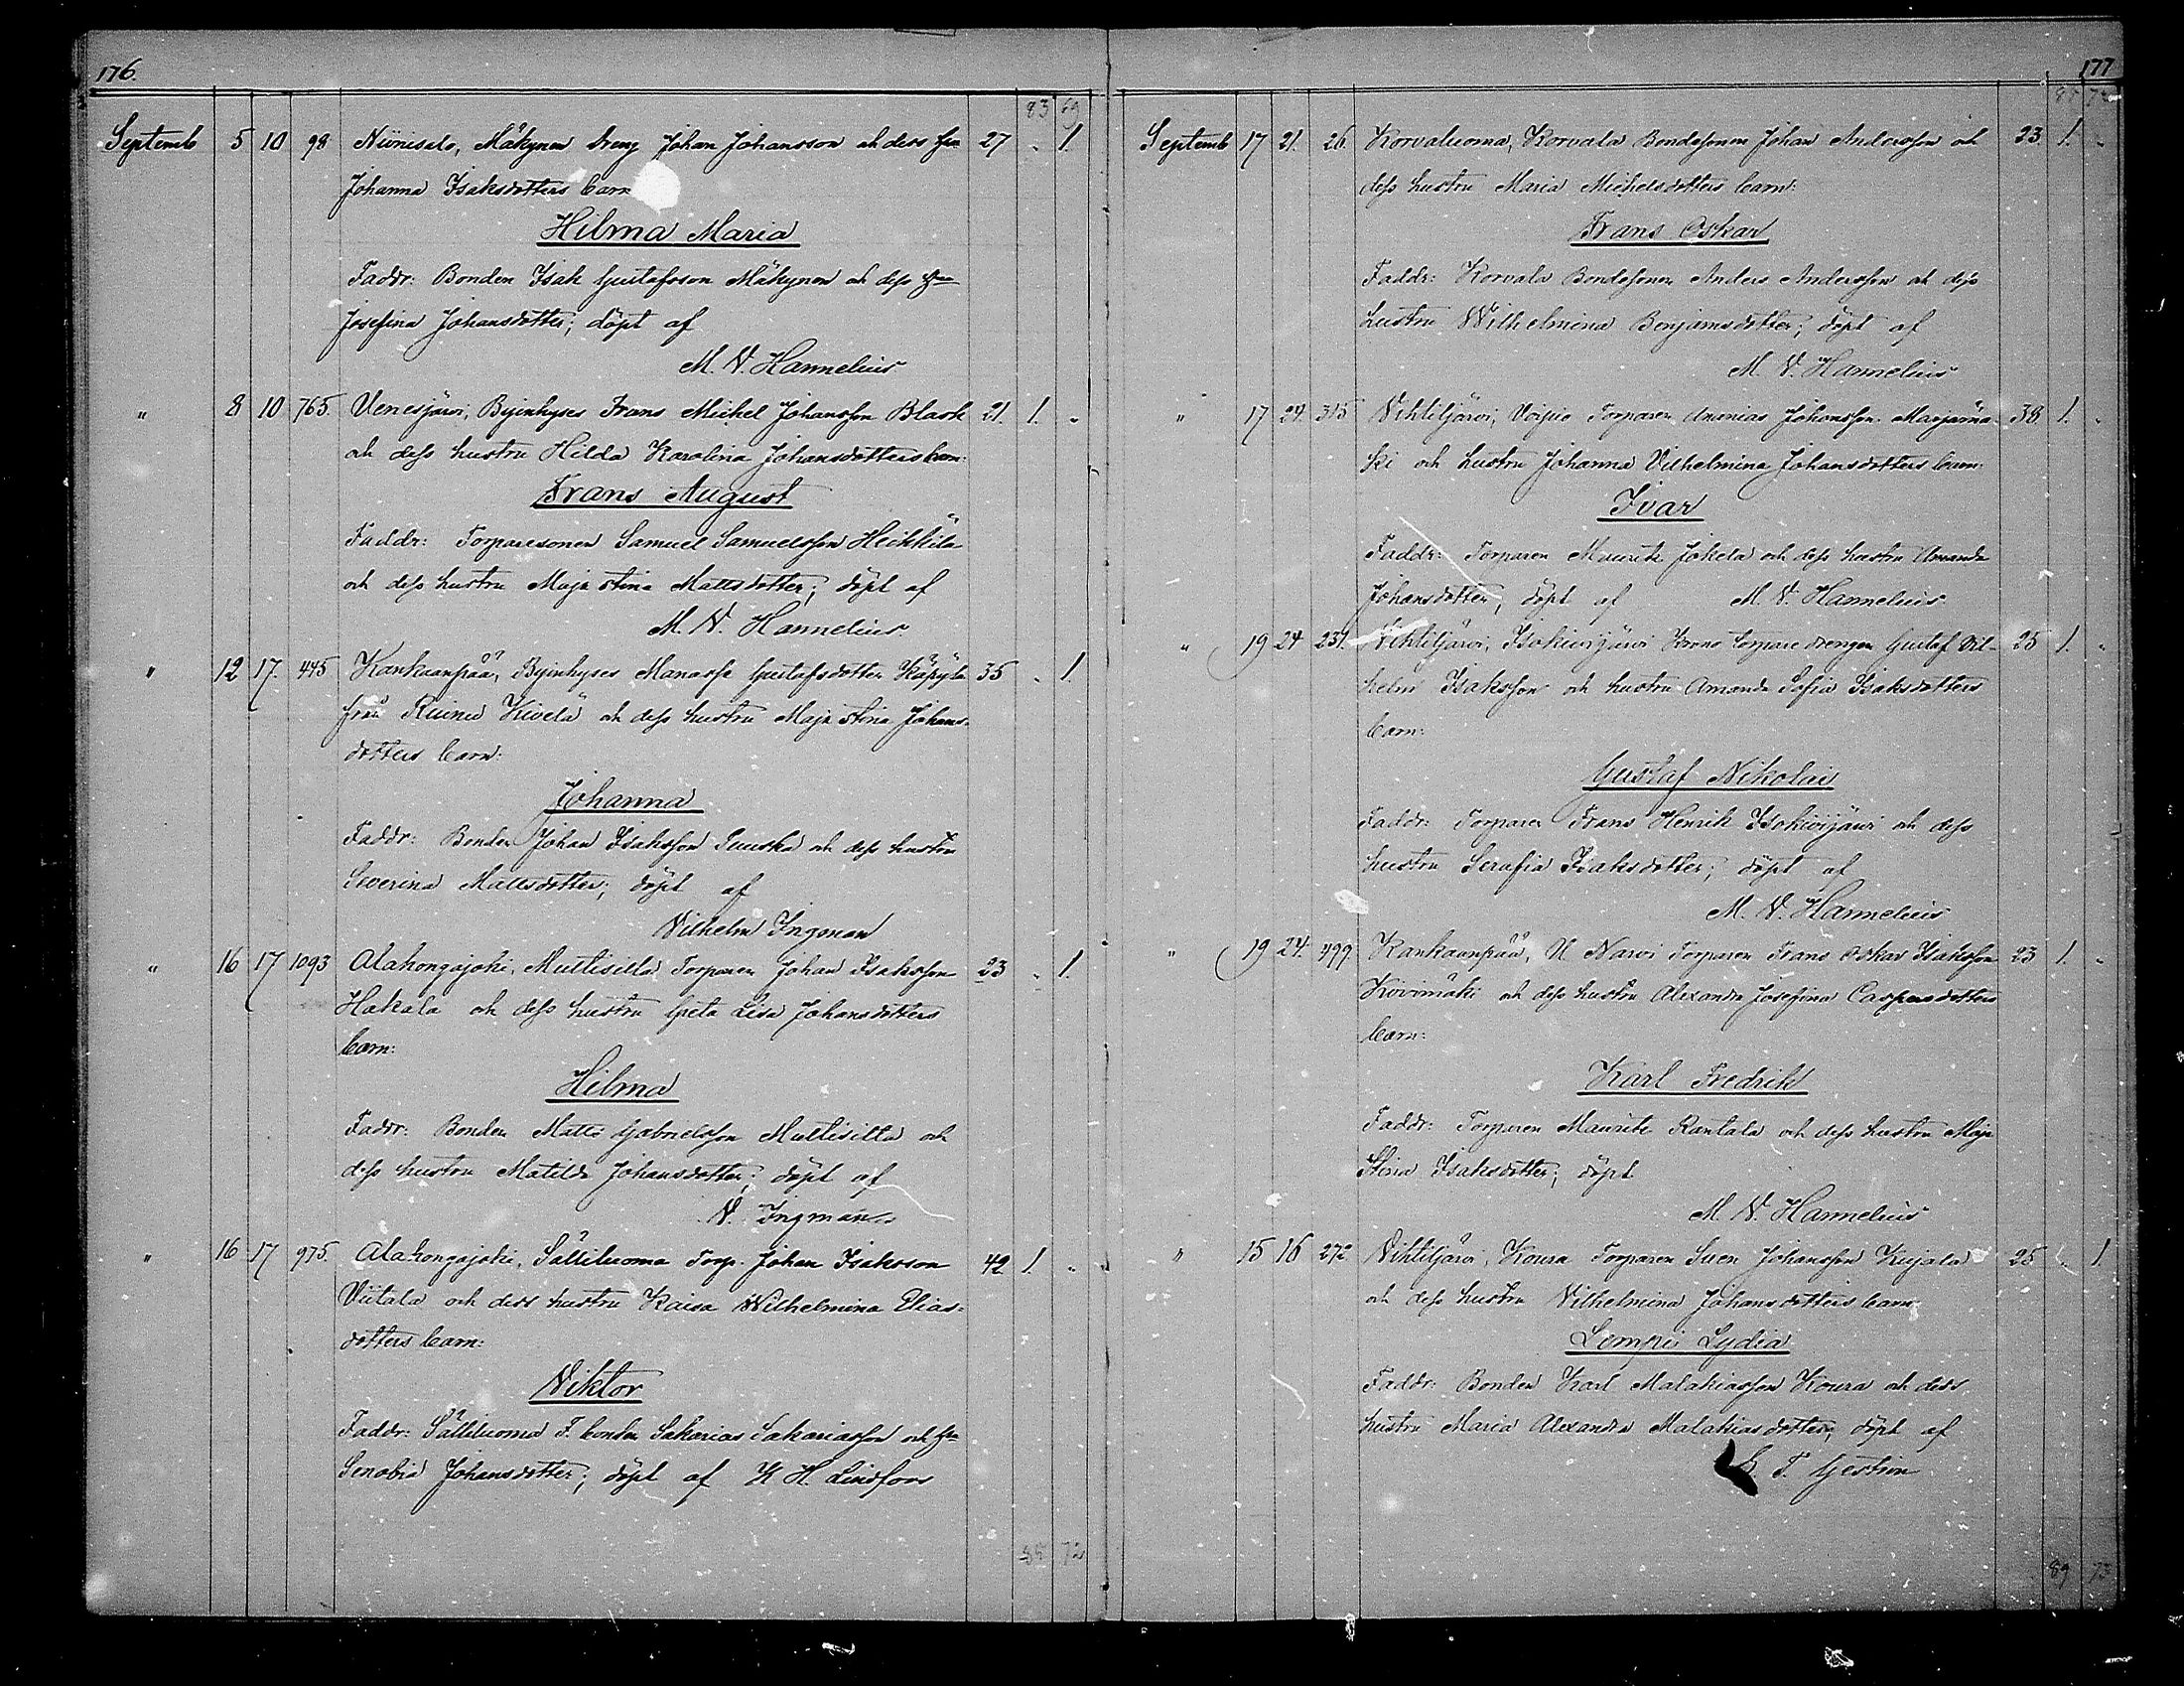 176.
83 69
Septemb 5 10 98 Niinisalo, Mäkynen dreng Johan Johansson och dess hu 27 " 1.
Johanna Isaksdotters barn
Hilma Maria
Faddr: Bonden Isak Gustafsson Mäkynen och dess hu
Josefina Johansdotter; döpt af
M. V. Hannelius
" 8 10 765. Venesjärvi, Byinhyses Frans Mickel Johansson Black 21. 1. "
och dess hustru Hilda Karolina Johansdotters barn:
Frans August
Faddr: Torparesonen Samuel Samuelsson Heikkilä
och dess hustru Maja Stina Mattsdotter; döpt af
M. V. Hannelius
" 12 17. 445 Kankaanpää, Byinhyses Manasse Gustafsdotter Käpylä 35 " 1
från Kivelä och dess hustru Maja Stina Johans-
dotters barn:
Johanna
Faddr: Bonden Johan Isaksson och dess hustru
Severina Mattsdotter; döpt af
Vilhelm Ingman
" 16 17 1093 Alahongajoki, Multisilta Torparen Johan Isaksson 23 " 1.
Hakala och dess hustru Greta Lisa Johansdotters
barn:
Hilma
Faddr: Bonden Matts Gabrielsson Multisilta och
dess hustru Matilda Johansdotter; döpt af
V. Ingman
" 16 17 975. Alahongajoki, Sälliluoma Torp. Johan Isaksson 42 1. "
Viitala och dess hustru Kaisa Wilhelmina Elias-
dotters barn:
Viktor
Faddr: Sälliluoma F. bonden Sakarias Sakariasson och hu
Senobia Johansdotter; döpt af K. H. Lindfors
85 72
177
85 72
Septemb 17 21. 26. Korvaluoma, Korvala Bondesonen Johan Andersson och 23. 1. "
dess hustru Maria Mickelsdotters barn:
Frans Oskar
Faddr: Korvala Bondesonen Anders Andersson och dess
hustru Wilhelmina Benjamsdotter; döpt af
M. V. Hannelius
" 17 24. 315 Vihteljärvi, Voipio Torparen Ananias Johansson Marjamä- 38. 1. "
ki och hustru Johanna Vilhelmina Johansdotters barn:
Ivar
Faddr: Torparen Mauritz Jokela och dess hustru Amanda
Johansdotter; döpt af M. V. Hannelius
" 19 24 231. Vihteljärvi, Isokivijärvi Krono torpare drengen Gustaf Vil- 25 1. "
helm Isaksson och hustru Amanda Sofia Isaksdotters
barn:
Gustaf Nikolai
Faddr: Torparen Frans Henrik Isokivijärvi och dess
hustru Serafia Isaksdotter; döpt af
M. V. Hannelius
" 19 24. 499. Kankaanpää, U Narvi Torparen Frans Oskar Isaksson 23 1. "
Kivimäki och dess hustru Alexandra Josefina Caspersdotters
barn:
Karl Fredrik
Faddr: Torparen Mauritz Rantala och dess hustru Maja
Stina Isaksdotter; döpt
M. V. Hannelius
" 15 16 272 Vihteljärvi, Koura Torparen Sven Johansson Kujala 25 " 1.
och dess hustru Vilhelmina Johansdotters barn
Lempi Lydia
Faddr: Bonden Karl Malakiasson Koura och dess
hustru Maria Alexandra Malakiasdotter; döpt af
89 73